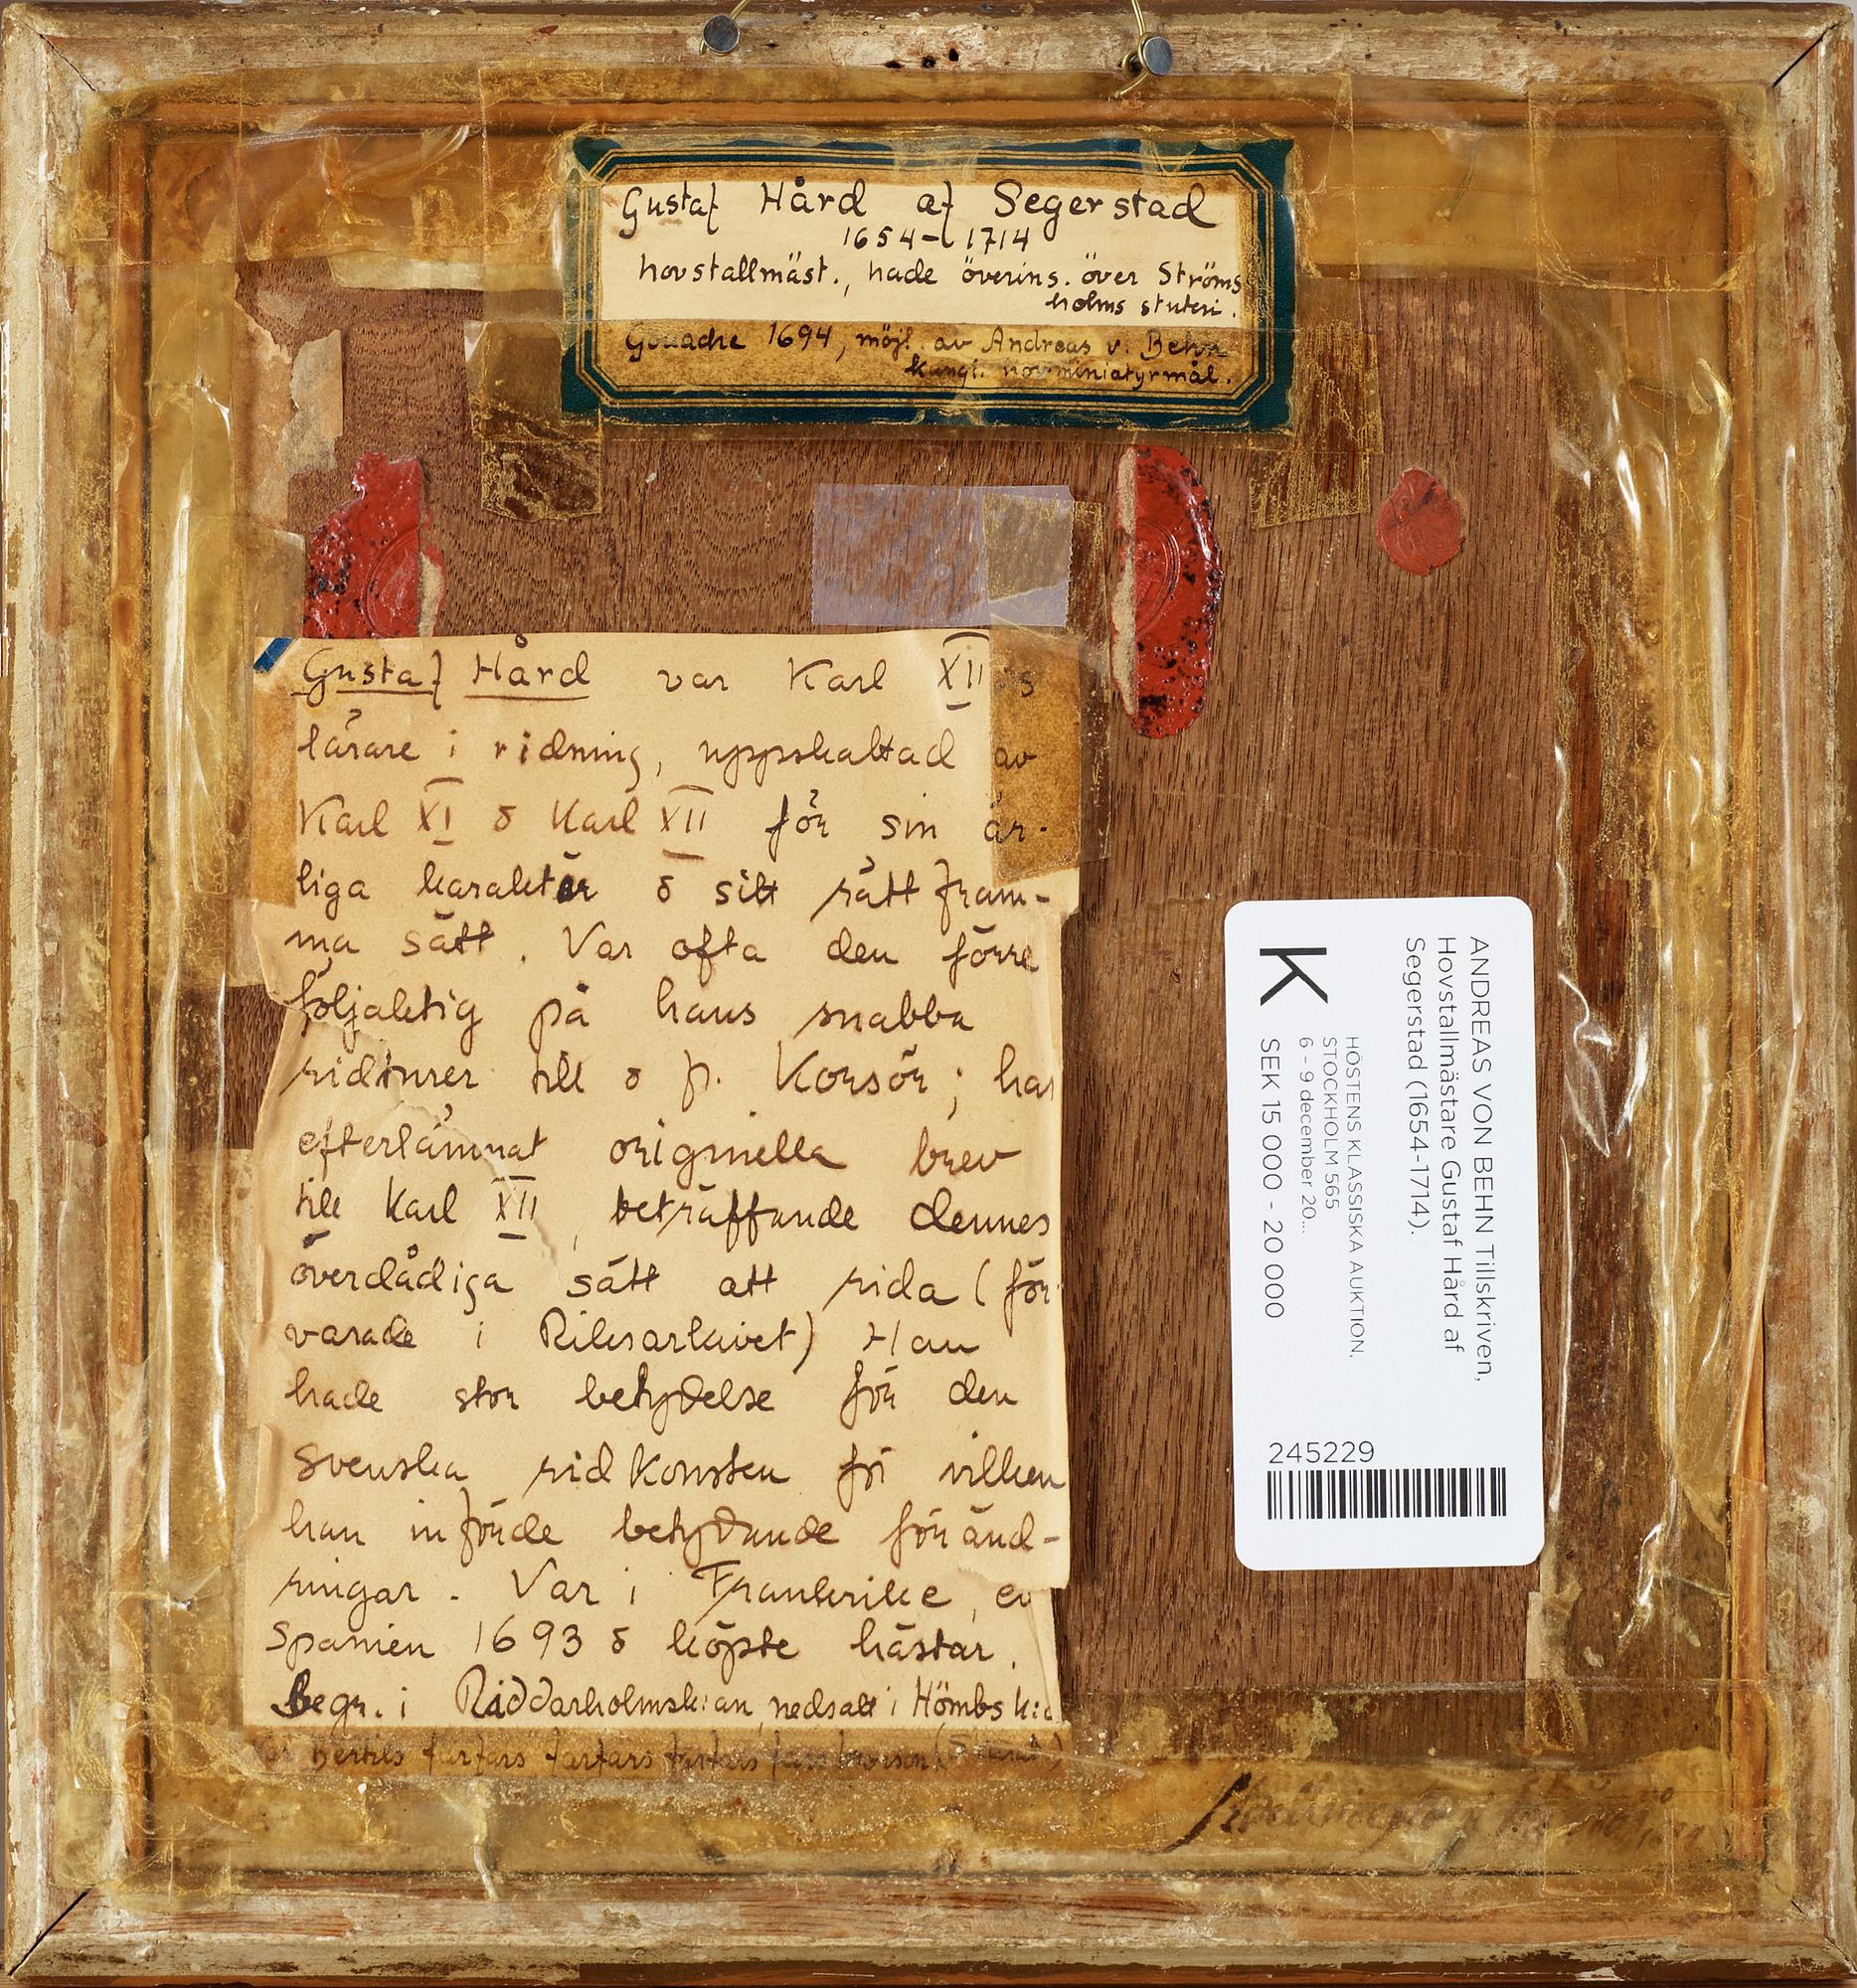 Gustaf Hård af Segerstad
1654-1714
hovstallmäst., hade överins. över Ströms
holms stuteri.
Gouache 1694, möjl. av Andreas v. Behn
Kungl. hovminiatyrmål.
Gustaf Hård var Karl XII s
lärare i ridning, uppskattad av
Karl XI o Karl XII för sin är-
liga karaktär o sitt rätt fram-
ma sätt. Var ofta den förre
följaktig på hans snabba
ridturer till o fr. Korsör; har
efterlämnat originella brev
till Karl XII, beträffande dennes
överdådiga sätt att rida (för
varade i Riksarkivet) Han
hade stor betydelse för den
svenska ridkonsten för vilken
han införde betydande föränd-
ringar. Var i Frankrike, ev
Spanien 1693 o köpte hästar.
Begr. i Riddarholmsk:an, nedsatt i Hömbs k:a
Bertils farfars farfars farfars fars brorson
ANDREAS VON BEHN Tillskriven,
Hovstallmästare Gustaf Hård af
Segerstad (1654-1714).
HÖSTENS KLASSISKA AUKTION,
STOCKHOLM 565
6 - 9 december 20...
K SEK 15 000 - 20 000
245229